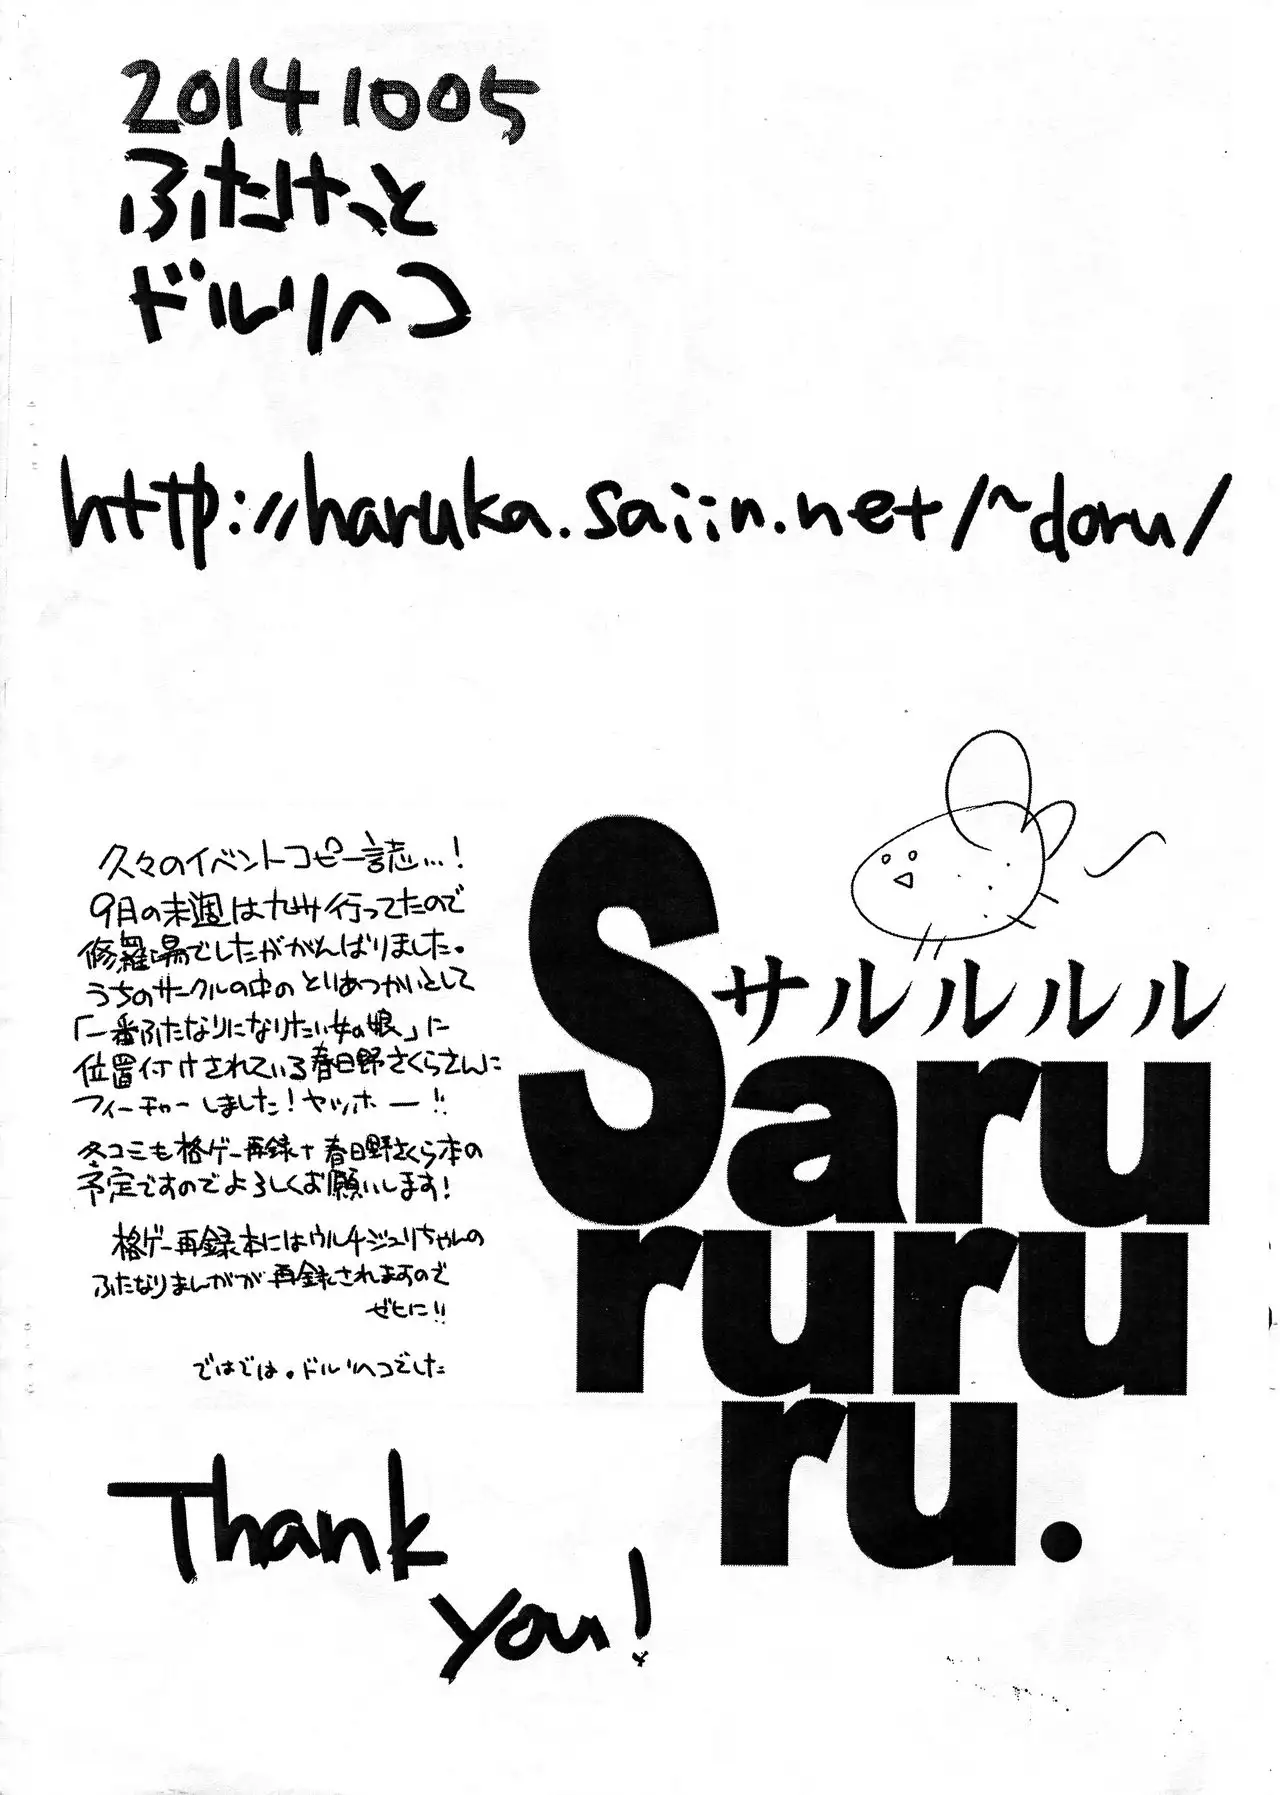 20141005
ふたけっと
ドルリヘコ
http://haruka.saiin.net/~doru/
久々のイベントコピー誌…!
9月の末週は九州行ってたので
修羅場でしたががんばりました。
うちのサークルの中のとりあつかいとして
「一番ふたなりになりたい女の娘」に
位置付けされている春日野さくらさんに
フィーチャーしました!ヤッホー!!
冬コミも格ゲー再録+春日野さくら本の
予定ですのでよろしくお願いします!
格ゲー再録本にはウルチジュリちゃんの
ふたなりまんがが再録されますので
ぜひに!!
ではでは。ドルリヘコでした
Thank
you!
サルルルル
Saru
ruru
ru.